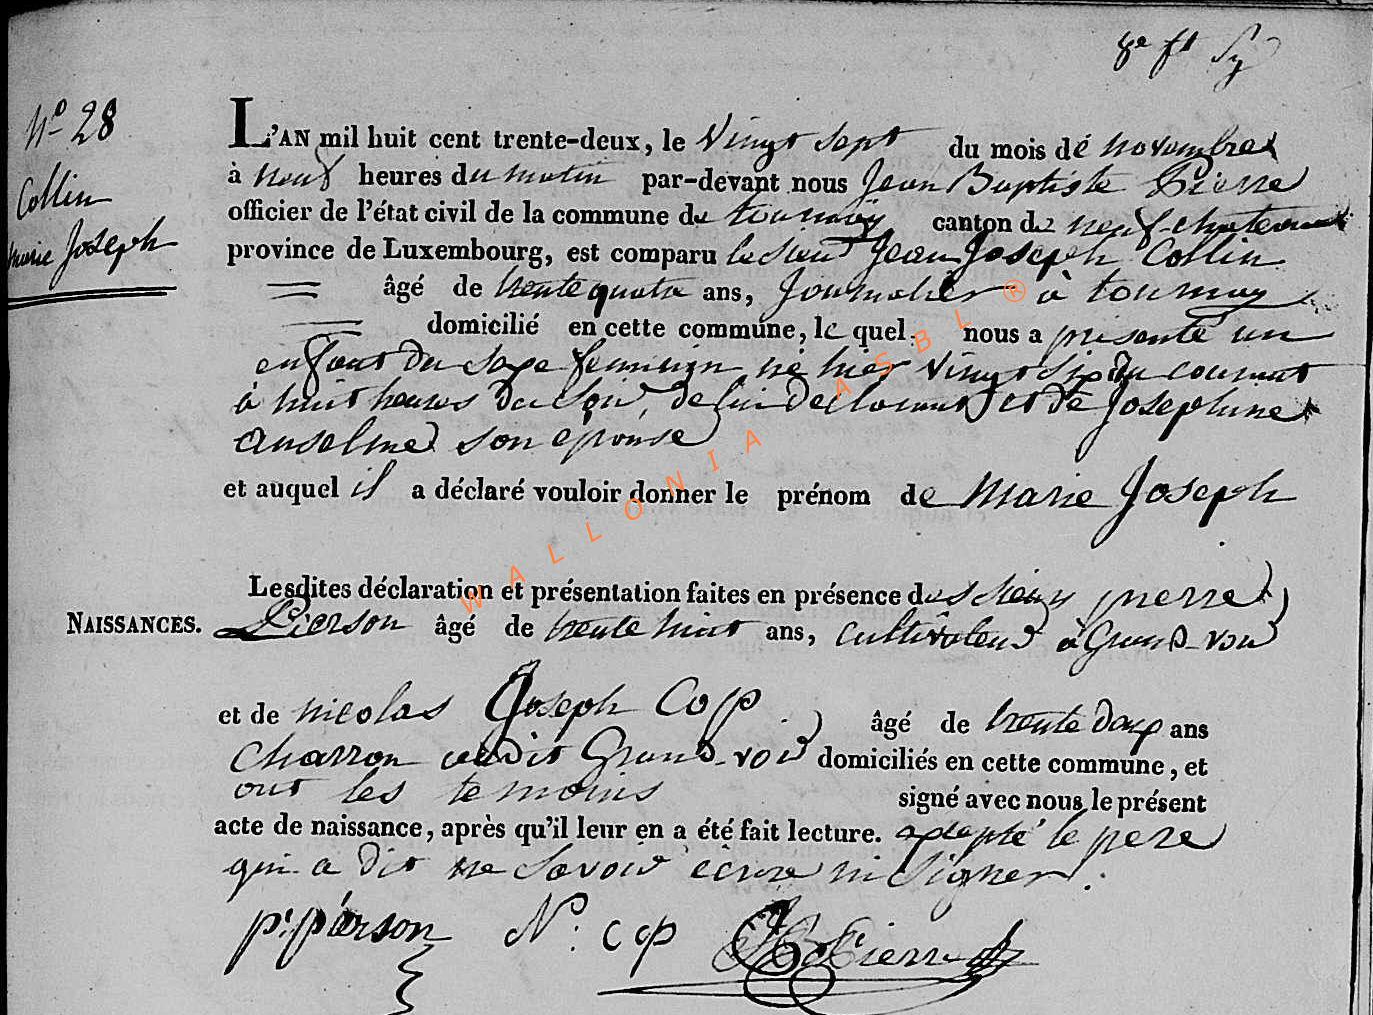 8e ft
No 28
Collin
marie Joseph
L'AN mil huit cent trente-deux, le Vingt sept du mois de novembre
à neuf heures du matin par-devant nous Jean Baptiste Pierre
officier de l'état civil de la commune de tournay canton de neuf-chateau
province de Luxembourg, est comparu le sieur Jean Joseph Collin
âgé de trente quatre ans, Journalier à tournay
domicilié en cette commune, le quel nous a présenté un
enfant du sexe feminin né hier vingt six du courant
à huit heures du soir, de lui declarant et de Josephine
anselme son épouse
et auquel il a déclaré vouloir donner le prénom de Marie Joseph
Lesdites déclaration et présentation faites en présence des sieurs pierre
NAISSANCES.
Pierson âgé de trente huit ans, cultivateur à Grand-voir
et de nicolas Joseph Cop âgé de trente deux ans
charron audit Grand-voir domiciliés en cette commune, et
ont les temoins signé avec nous le présent
acte de naissance, après qu'il leur en a été fait lecture. excepté le pere
qui a dit ne savoir écrire ni signer.
pr. pierson N. cop JB Pierre
WALLONIA ASBL ®